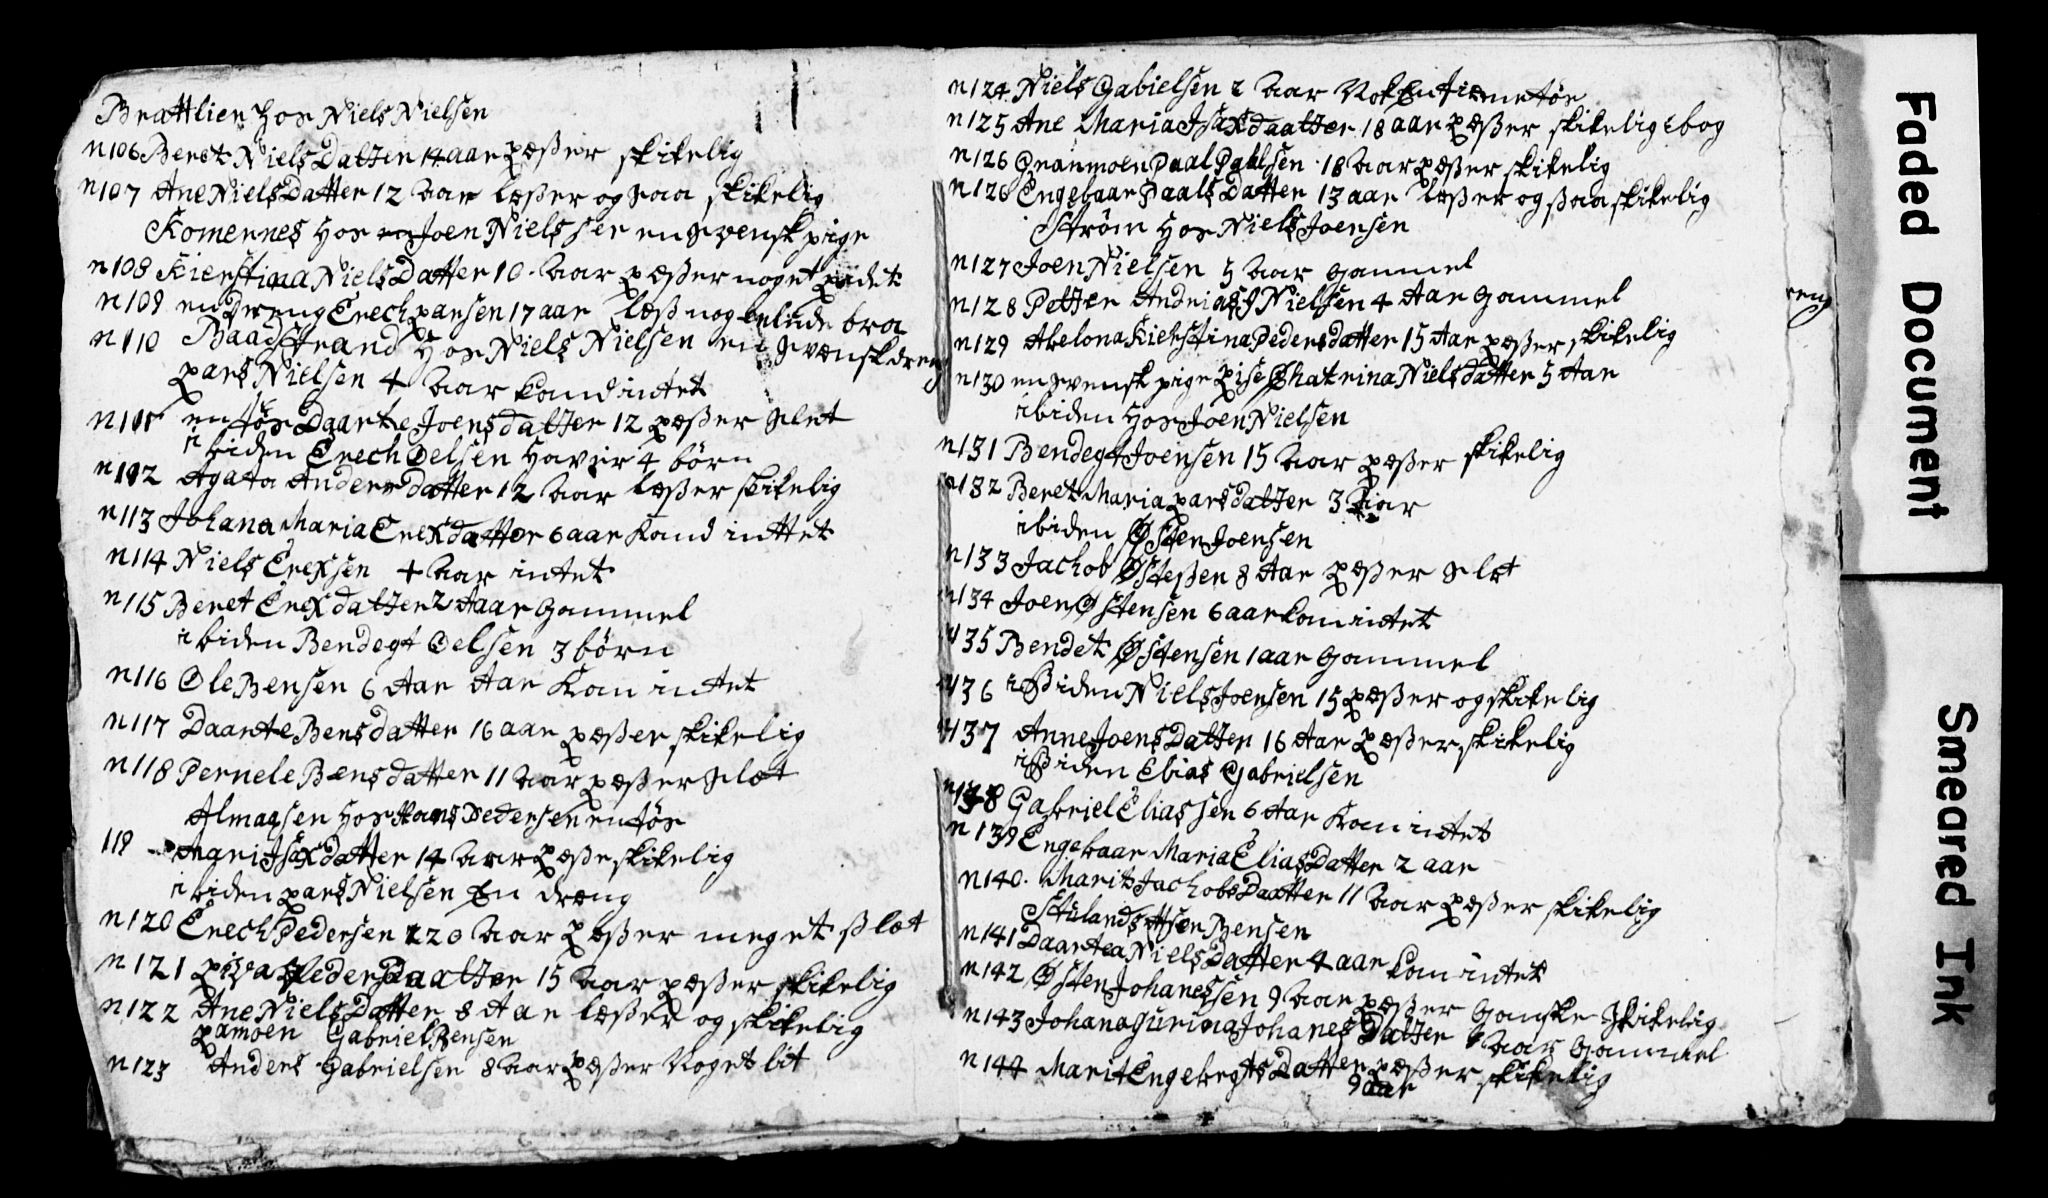 Brattlien Hos Niels Nielsen
n106 Beret Niels Datter 14 aar læßer skikelig
n107 Ane Niels Datter 12 aar læßer og saa skikelig
Komernes Hos Joen Nielssen en svensk pige
n108 Kierstina Niels Datter 10 aar læßer noget lidet
n109 en dreng Erech parsen 17 aar læß nogenlunde bra
n110 Baadstrand Hos Niels Nielsen en svensk dreng
pars Nielsen 4 aar kand intet
n111 en tøs Daarte Joens datter 12 læßer slet
ibiden Erech Oelsen Haver 4 børn
n112 Agata Anders datter 12 aar læßer skikelig
n113 Johana Maria Erexdatter 6 aar kand inttet
n114 Niels Erexsen 4 aar intet
n115 Beret Erexdatter 2 aar gammel
ibiden Bendegt Oelsen 3 børn
n116 Ole Bensen 6 Aar Aar kan inttet
n117 Daarte Bens datter 16 aar læßer skikelig
n118 Pernele Bens datter 11 aar læßer slæt
Almaasen Hos Hans Pedersen en tøs
119 Mari Isaxdatter 14 aar læßer skikelig
ibiden pars Nielsen En dræng
n120 Erech Pedersen 20 aar læßer meget slæt
n121 Peders Daatter 15 aar læßer skikelig
n122 Ane Niels Datter 8 Aar læßer og skikelig
Lamoen Gabriel Bensen
n123 Anders Gabrielsen 8 aar læßer Noget lit
n124 Niels Gabielsen 2 aar Nok En tøs
n125 Ane Maria Isaxdaatter 18 aar læßer skikelig i bog
n126 Granmoen Paal Palsen 18 aar læßer skikelig
n126 Engebaar Paals Datter 13 aar læßer og ßaa skikelig
Strøm Hos Niels Joensen
n127 Joen Nielsen 5 aar gammel
n128 Petter Andrias Nielsen 4 Aar Gammel
n129 Abelona Kierstina Pedersdatter 15 Aar læßer skikelig
n130 en svensk pige Lise Chatrina Niels datter 5 Aar
ibiden Hos Joen Nielsen
n131 Bendegt Joensen 15 aar læßer skikelig
n132 Beret Maria pars datter 3 aar
ibiden Østen Joensen
n133 Jachob Østenßen 8 Aar læßer slæt
n134 Joen Østensen 6 aar kan intet
n135 Bendet Østensen 1 aar Gammel
n136 ibiden Niels Joensen 15 læßer og skikelig
n137 Anne Joens Datter 16 Aar læßer skikelig
ibiden Elias Gabrielsen
n138 Gabriel Eliassen 6 Aar kan intet
n139 Engebaar Maria Elias Datter 2 aar
n140 Marit Jachobs Daatter 11 aar læßer skikelig
Bensen
n141 Daartea Niels Datter 4 aar kan intet
n142 Østen Johanessen 9 aar læßer Ganske skikelig
n143 Johana Gurina Johanes Datter aar Gammel
n144 Marit Engebregts Datter læßer skikelig
9 aar
reng
Faded Document
Smeared Ink